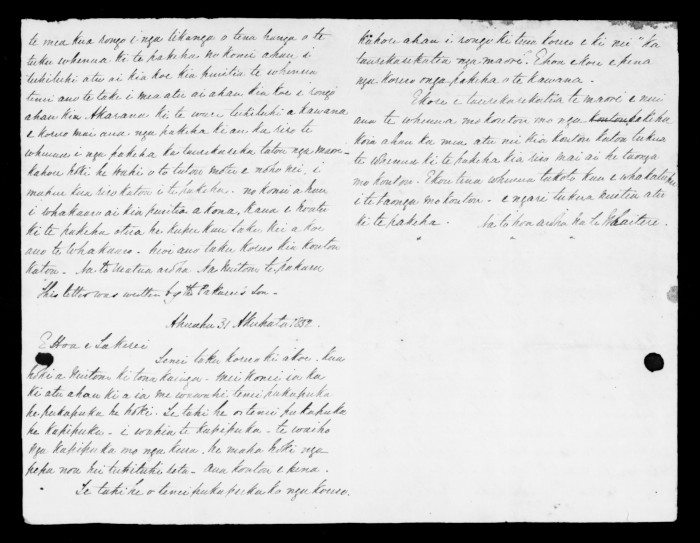 te mea kua rongo i nga tikanga o tena hanga o te
tuku whenua ki te pakeha no konei ahau i
tukituki atu ai kia koe kia puritia te whenua
tenei ano te take i mea atu ai ahau kia koe e rongo
ahau kia Akarana ki te ware tukituki a kawana
e korero mai ana nga pakeha ki au ka riro te
whenua i nga pakeha ka taurekareka tatou nga maori
kahore hoki he wahi o to tatou motu e noho nei, i
mahue kua riro katoa i te pakeha. no konei ahau
i whakaaro ai kia puritia akona, kaua e hoatu
ki te pakeha otira he kupu kau taku kei a koe
ano te whakaaro. heoi ano taku korero kia koutou
katoa. Na to Matua aroha Na kuitone te pakaru
This letter was written by the Pakaru's Son.
Ahuahu 31 Akuhata 1850.
E Hoa e Ta Kerei
Tenei taku korero ki a koe. Kua
hoki a kuitone ki tona kainga. mei konei ia ka
ki atu ahau ki a ia me wawahi tenei pukapuka
he pukapuka he hoki. Te tahi he o tenei pukapuka
he kapipuka - i wahia te kapipuka - te waiho
nga kapipuka mo nga kore. he maha hoki nga
pepa nou hei tuhituhi reta - aua koutou e pena.
Te tahi he o tenei pukapuka ko nga korero.
Kahore ahau i rongo ki tena korero e ki nei "Ka
taurekarekatia nga maori. Ehou ekore e pena
nga korero o nga pakeha o te kawana.
Ekore e taurekarekatia te maori e nui
ano te whenua mo koutou mo nga koutou pakeha
Koia ahau ka mea atu nei kia koutou katoa tukua
te whenua ki te pakeha kia riro mai ai he taonga
mo koutou. Ehou tena whenua takoto kau e whakatupu
i te taonga mo koutou. e ngari tukua huatia atu
ki te pakeha. Na to hoa aroha Na Te Waitere.